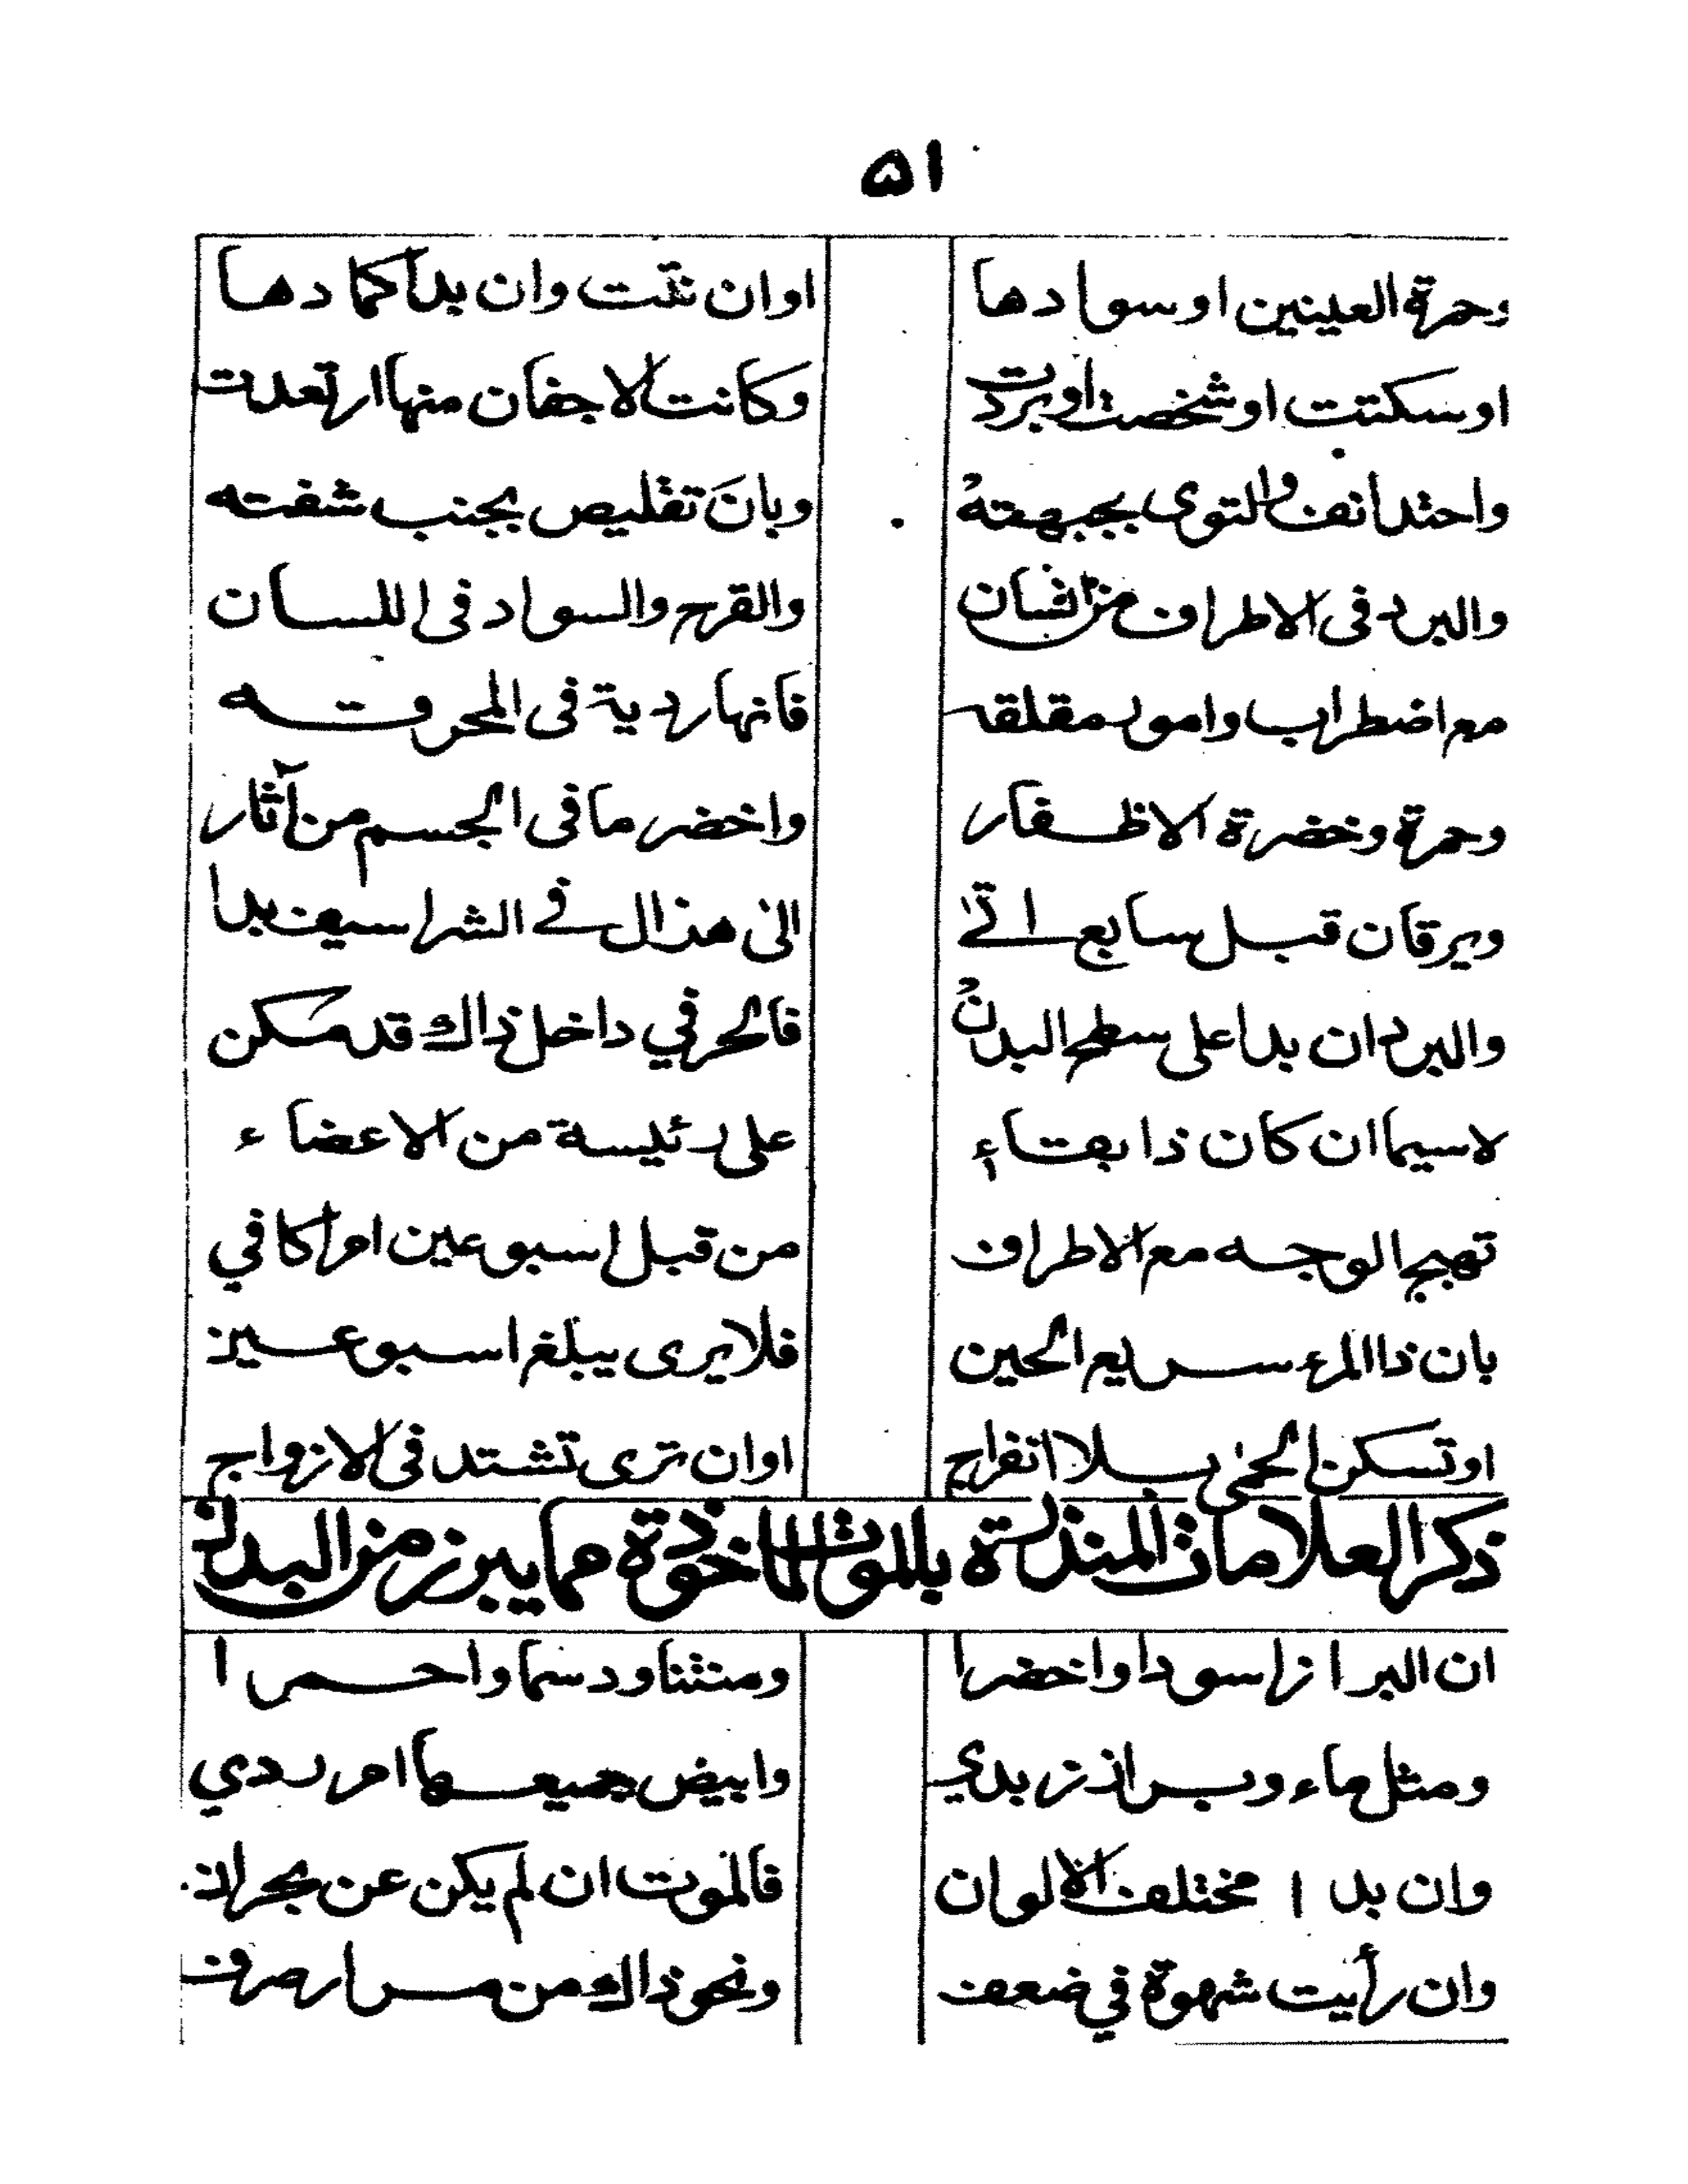 ۵۱
وحمرة العينين او سوادها اوان نتت وان بدا كمادها
اوسكنتت او شخصت او بردت وكانت الاجفان منها ارتعدت
واحتد أنف والتوى بجبهته وبان تقليص بجنب شفته
والبرد فى الاطراف من والقرح والسواد فى اللسان
مع اضطراب وامور مقلقه فانها ردية فى المحرقه
وحمرة وخضرة الاظفار واخضر ما فى الجسم من آثار
ويرقان قبل سابع اتى الى هذال فے الشراسيف بدا
والبرد ان بدا على سطح البدن فالحر في داخل ذاك قد سكن
لاسيما ان كان ذا بقاء على رئيسة من الاعضاء
تهيج الوجه مع الاطراف من قبل اسبوعين امرا كافي
بان ذا المرء سريع الحين فلا يرى يبلغ اسبوعين
او تسكن الحمى بلا انفراج اوان ترى تشتد فى الازواج
ذكر العلامات المنذرة بالموت الماخوذة مما يبرز من البدن
ان البراز اسودا واخضرا ومنتنا ودسما واحمرا
ومثل ماء وبراز زبدي وابيض جميعها امر ردي
وان بدا مختلف الالوان فالموت ان لم يكن عن بحران
وان رأيت شهوة في ضعف ونحو ذاك من مرار صرف